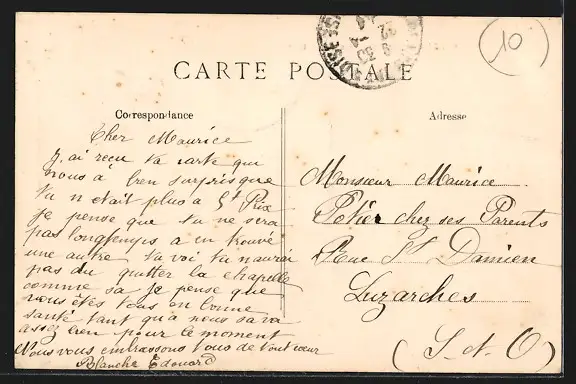 10
CARTE POSTALE
Correspondance
Adresse
Cher Maurice
J, ai reçu ta carte qui
nous à bien surpris que
tu n etait plus à St Prix
je pense que tu ne sera
pas longtemps a en trouvé
une autre tu voi tu naurai
pas du quitter la chapelle
comme sa je pense que
vous êtes tous en bonne
santé tant qu'a nous sa va
assez bien pour le moment
Nous vous embrassons tous de tout cœur
Blanche Édouard
Monsieur Maurice
Potier chez ses Parents
Rue St Damien
Luzarches
(S-et-O)